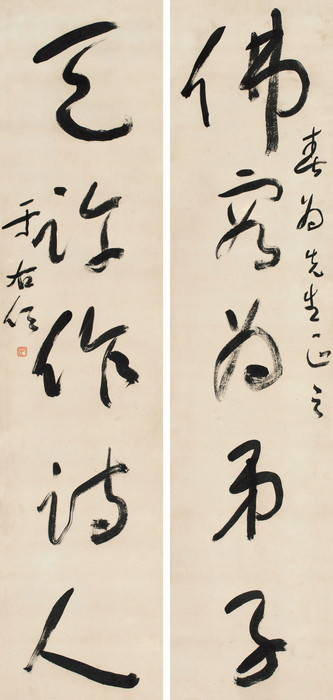 春為先生正之
佛容為弟子
天許作詩人
于右任